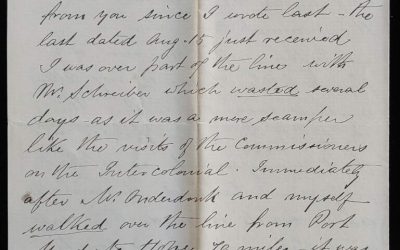 from you since I wrote last – the
last dated Aug. 15 just received
I was over part of the line with
Mr. Schreiber which wasted several
days – as it was a mere scamper
like the visits of the Commissioners
on the Intercolonial. Immediately
after Mr. Onderdonk and myself
walked over the line from Port
Moody to Hope 70 miles – it was